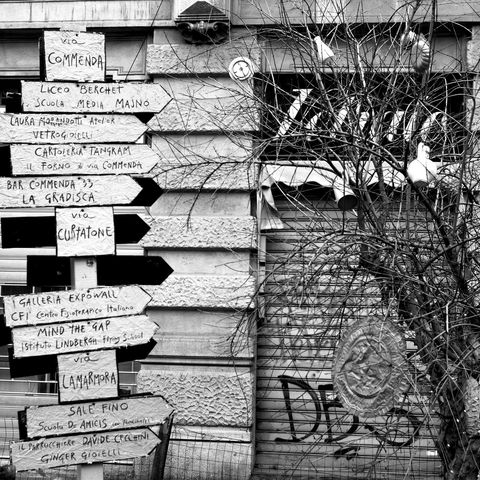 via
COMMENDA
LICEO BERCHET
SCUOLA MEDIA MASNO
LAURA MORANDOTTI Atelier
VETROGIOIELLI
CARTOLERIA TANGRAM
IL FORNO di via COMMENDA
BAR COMMENDA 33
LA GRADISCA
via
CURTATONE
GALLERIA EXPOWALL
CFI Centro Fisioterapico Italiano
MIND THE GAP
istituto LINDBERGH Flying School
via
LAMARMORA
SALE FINO
SCUOLA DE AMICIS
IL PARRUCCHIERE DAVIDE CECCHINI
GINGER GIOIELLI